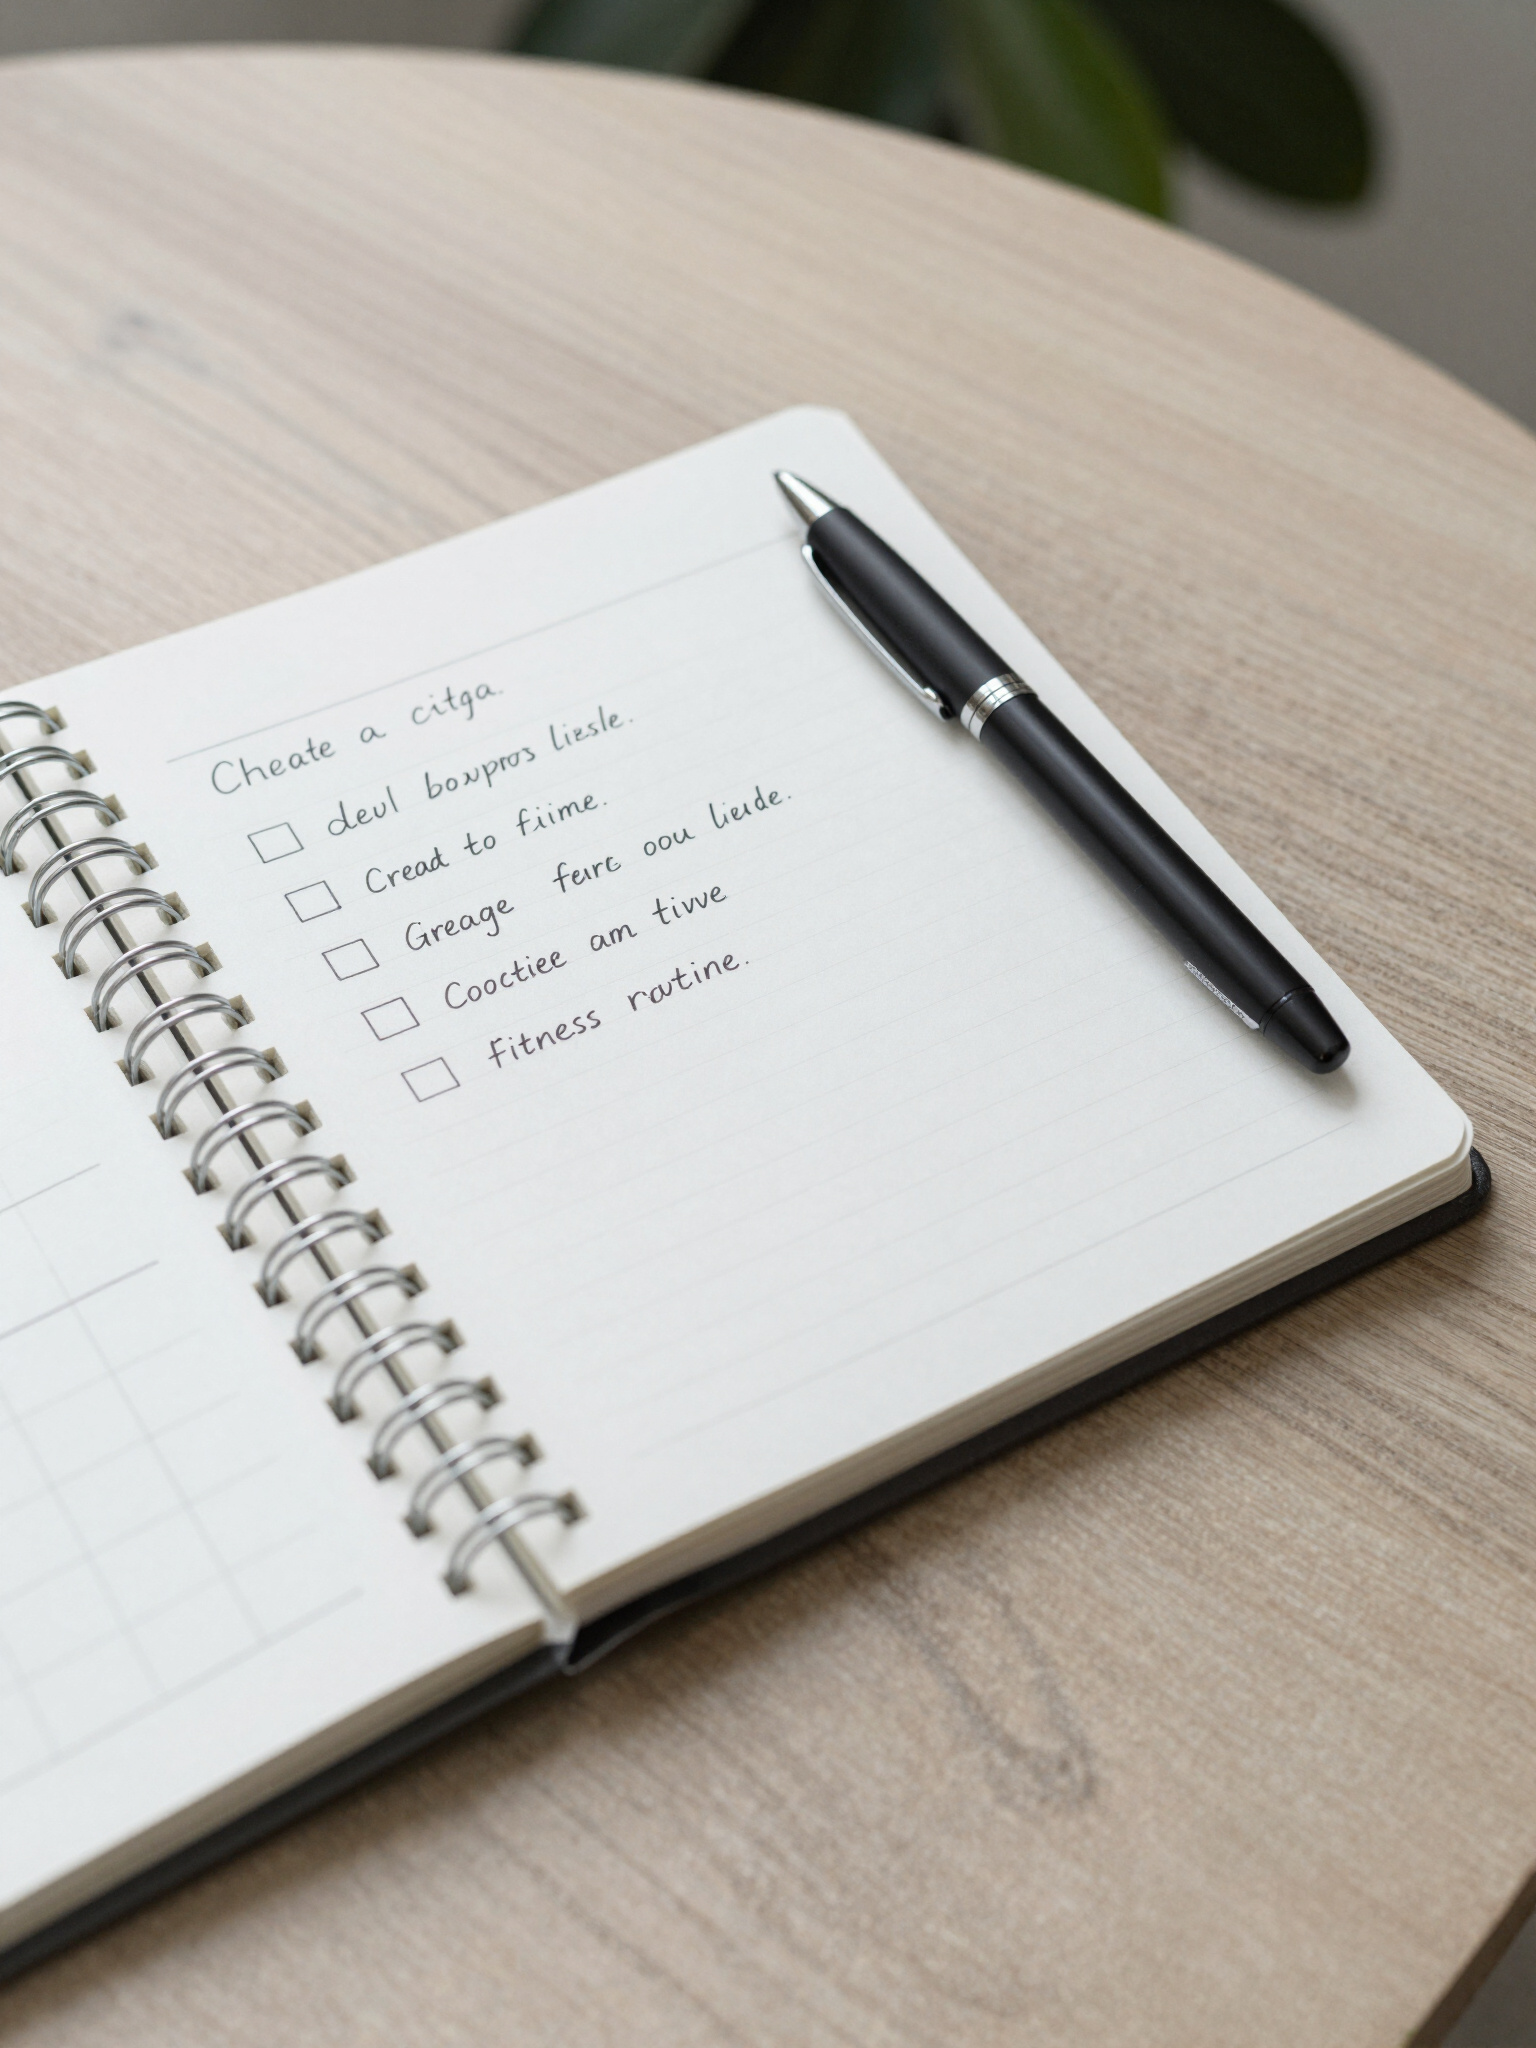 Cheate a citga.
deul boxpros liesle.
Cread to fiime.
Greage feirc oou liede.
Cooctiee am tivve
fitness routine.